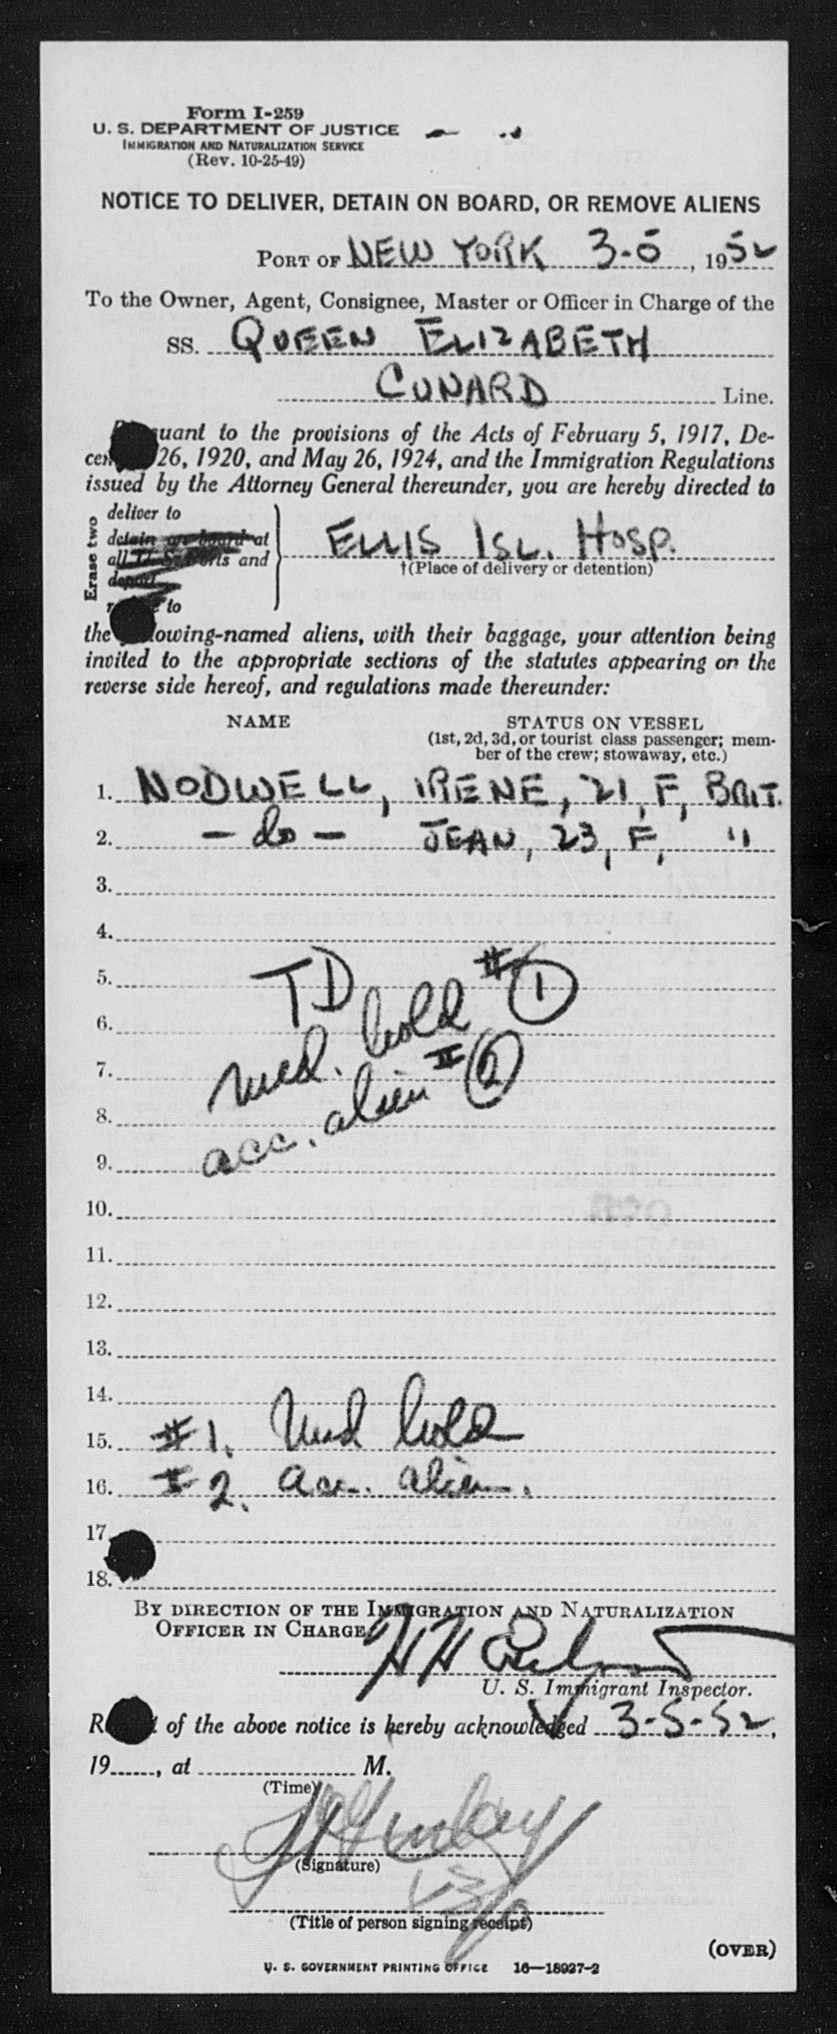 Form I-259
U. S. DEPARTMENT OF JUSTICE
IMMIGRATION AND NATURALIZATION SERVICE
(Rev. 10-25-49)
NOTICE TO DELIVER, DETAIN ON BOARD, OR REMOVE ALIENS
PORT OF NEW YORK 3-5, 1952
To the Owner, Agent, Consignee, Master or Officer in Charge of the
SS. QUEEN ELIZABETH
CUNARD Line.
to the provisions of the Acts of February 5, 1917, De-
26, 1920, and May 26, 1924, and the Immigration Regulations
issued by the Attorney General thereunder, you are hereby directed to
Erase two
deliver to
detain on board at
all U. S. ports and
deport
to
ELLIS ISL. HOSP.
†(Place of delivery or detention)
the following-named aliens, with their baggage, your attention being
invited to the appropriate sections of the statutes appearing on the
reverse side hereof, and regulations made thereunder:
NAME STATUS ON VESSEL
(1st, 2d, 3d, or tourist class passenger; mem-
ber of the crew; stowaway, etc.)
1. NODWELL, IRENE, 21, F, BRIT.
2. - do - JEAN, 23, F, "
3.
4.
5.
6.
7.
8.
9.
TD
med. hold #1
acc. alien #2
10.
11.
12.
13.
14.
15. #1. Med hold
16. #2. acc. alien.
17.
18.
BY DIRECTION OF THE IMMIGRATION AND NATURALIZATION
OFFICER IN CHARGE,
U. S. Immigrant Inspector.
of the above notice is hereby acknowledged 3-5-52,
19......, at .................. M.
(Time)
(Signature)
(Title of person signing receipt)
(OVER)
U. S. GOVERNMENT PRINTING OFFICE 16—18927-2